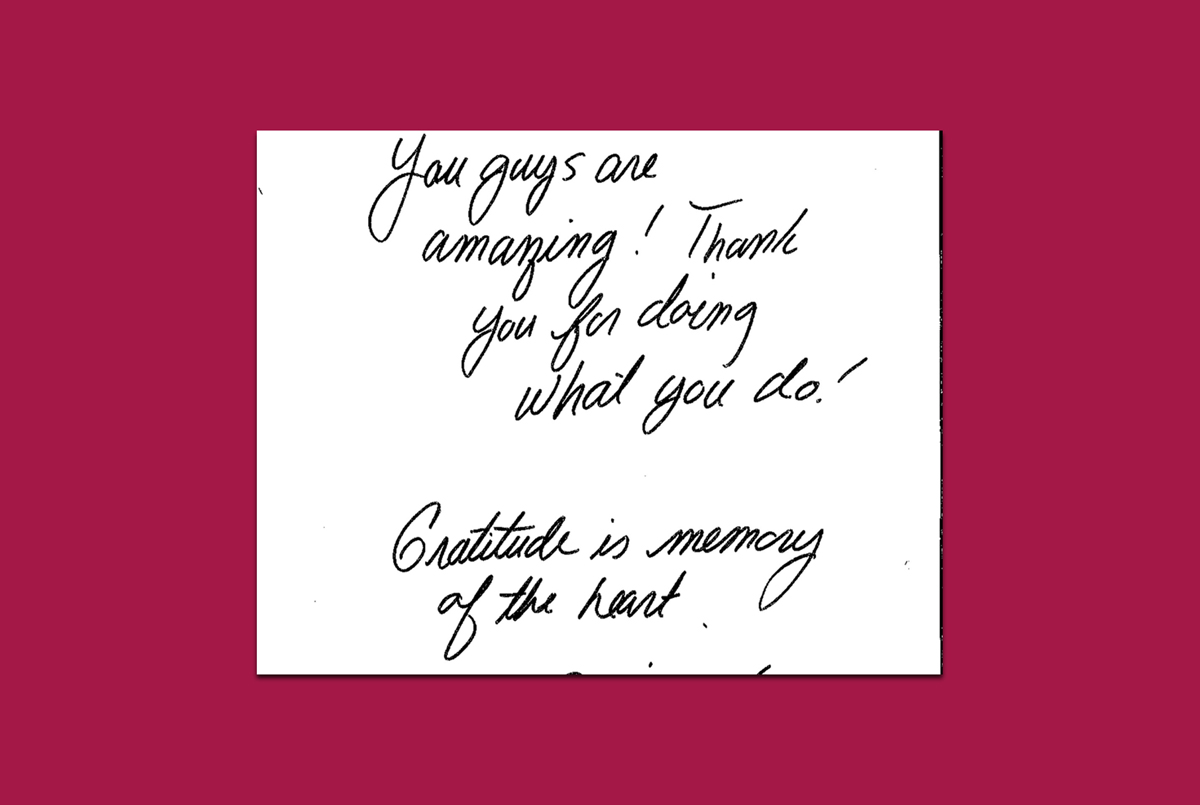 You guys are
amazing! Thank
you for doing
what you do!
Gratitude is memory
of the heart.